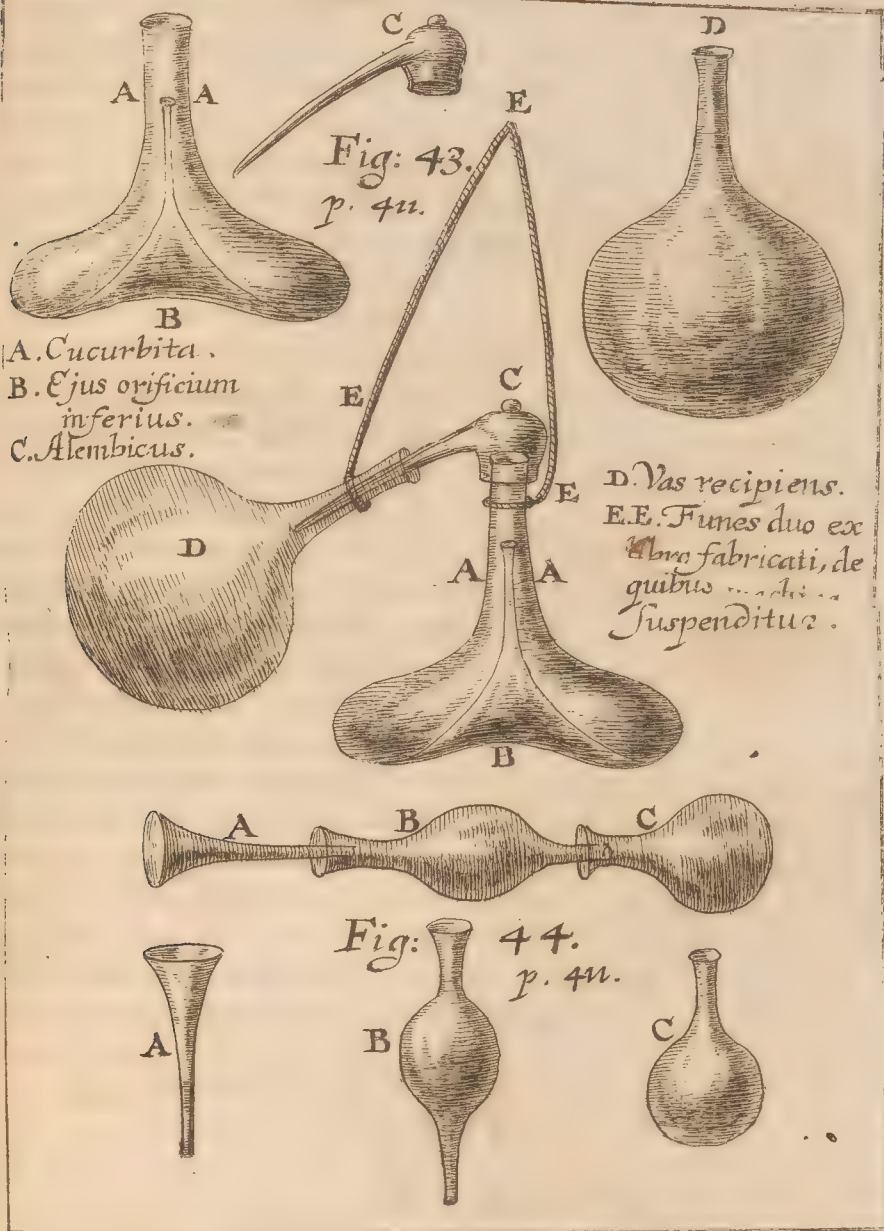 C
D
A A
E
Fig: 43.
p. 411.
B
A. Cucurbita.
B. Ejus orificium
inferius.
C. Alembicus.
E
C
D. Vas recipiens.
E.E. Funes duo ex
fabricati, de
quibus
suspenditur.
E
D
A A
B
A B C
Fig: 44.
p. 411.
A B C